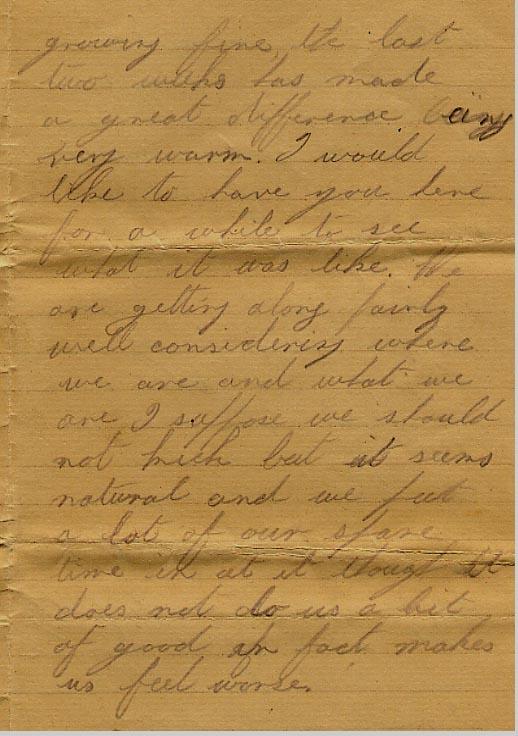 growing fine, the last
two weeks has made
a great difference being
very warm. I would
like to have you here
for a while to see
what it was like. We
are getting along fairly
well considering where
we are and what we
are I suppose we should
not kick but it seems
natural and we put
a lot of our spare
time in at it though it
does not do us a bit
of good in fact makes
us feel worse.